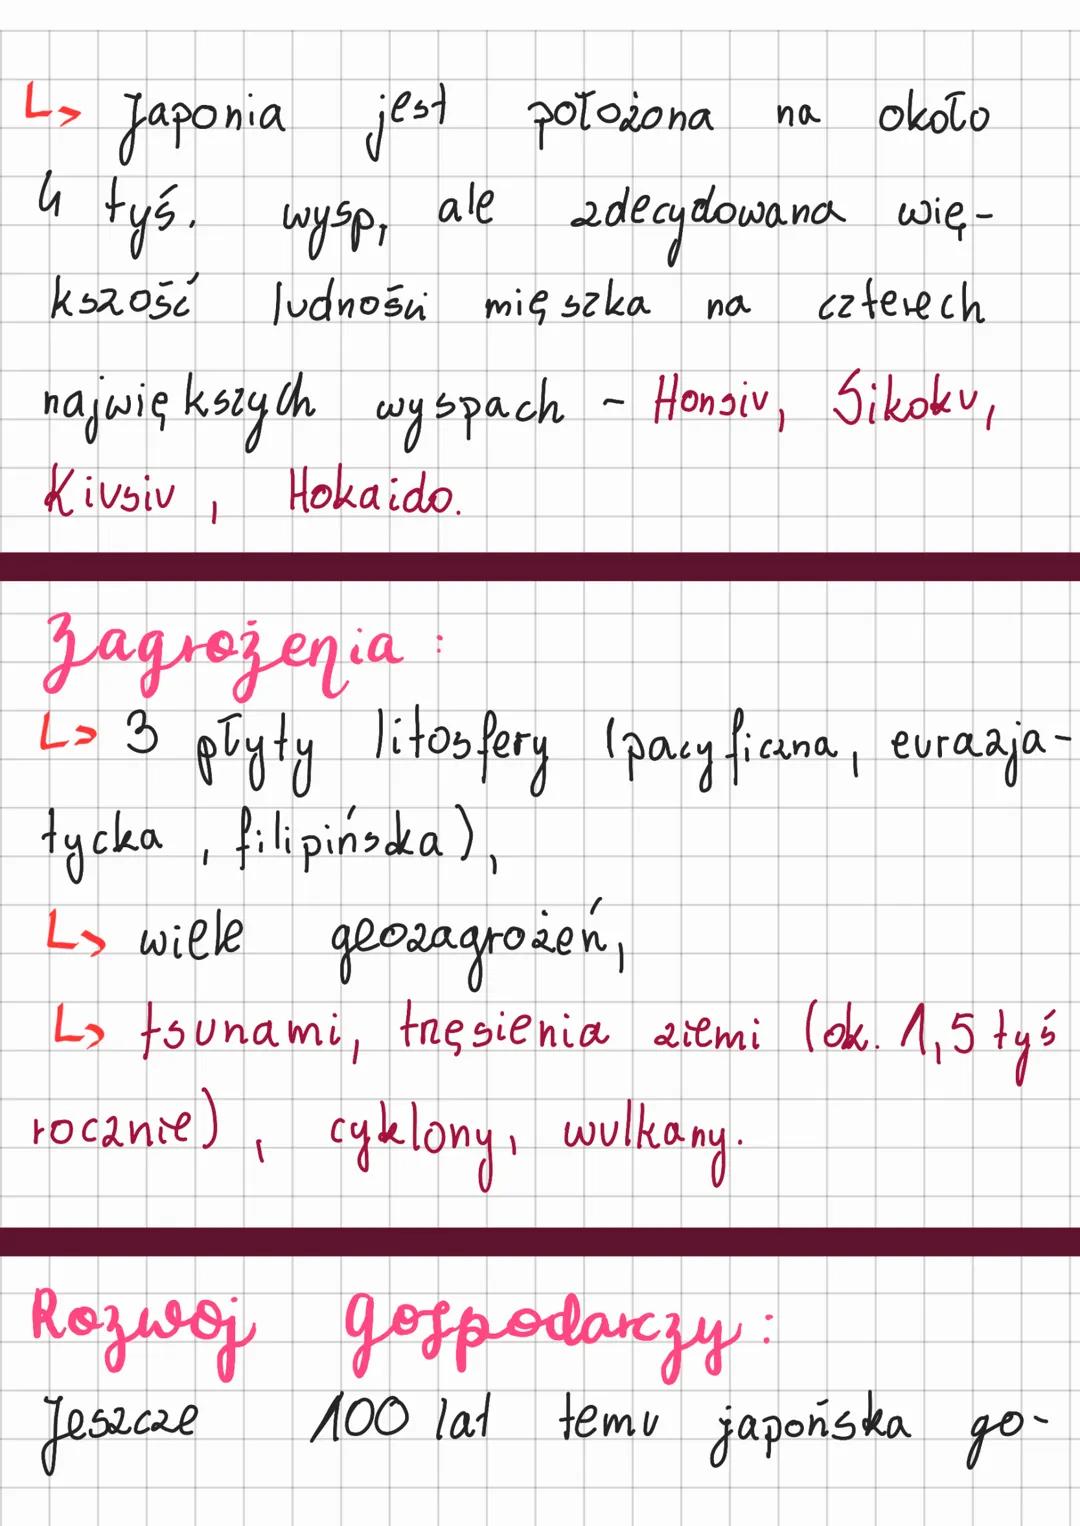 ↳ Japonia jest położona na około
4 tyś. wysp, ale zdecydowana wię-
kszość ludności mięszka na czterech
największych wyspach - Honsiu, Sikoku,
Kiusiu, Hokaido.
Zagrożenia:
↳ 3 płyty litosfery (pacyficzna, eurazja-
tycka, filipińska),
↳ wiele geozagrożeń,
↳ tsunami, tręsienia ziemi (ok. 1,5 tyś
rocznie), cyklony, wulkany.
Rozwój gospodarczy:
Jeszcze 100 lat temu japońska go-